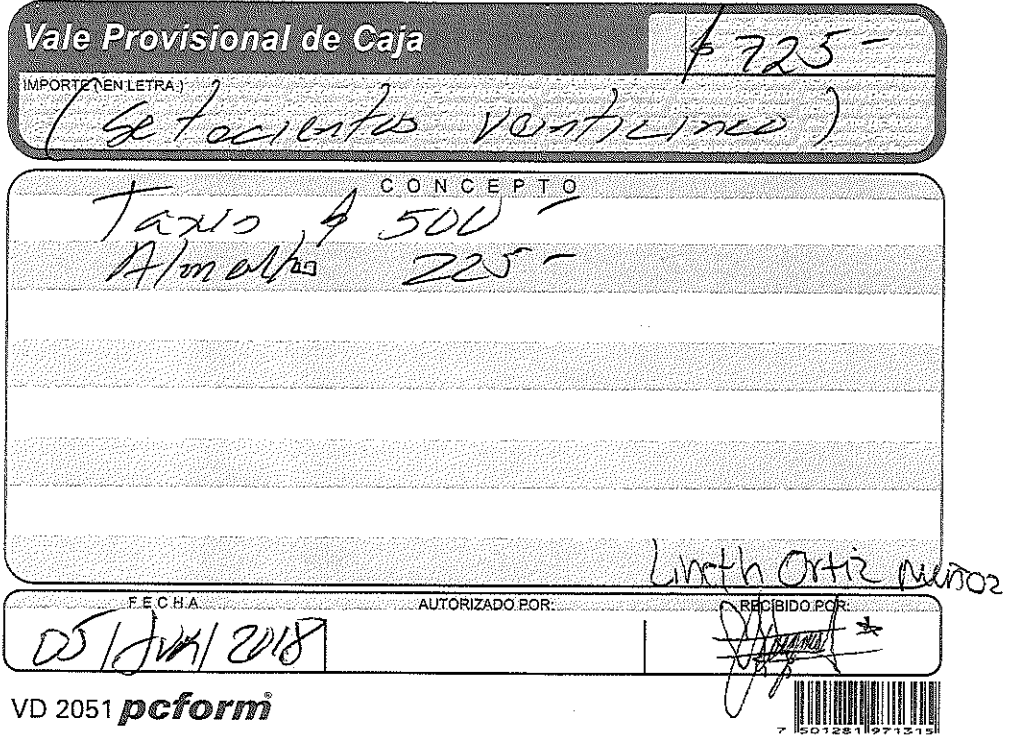 Vale Provisional de Caja
$ 725-
IMPORTE (EN LETRA:)
(Setocientos Veinticinco)
CONCEPTO
Taxis $ 500-
225-
Lineth Ortiz Muñoz
FECHA
AUTORIZADO POR:
RECIBIDO POR:
05/Jun/2018
VD 2051 pcform
7 501281 971315